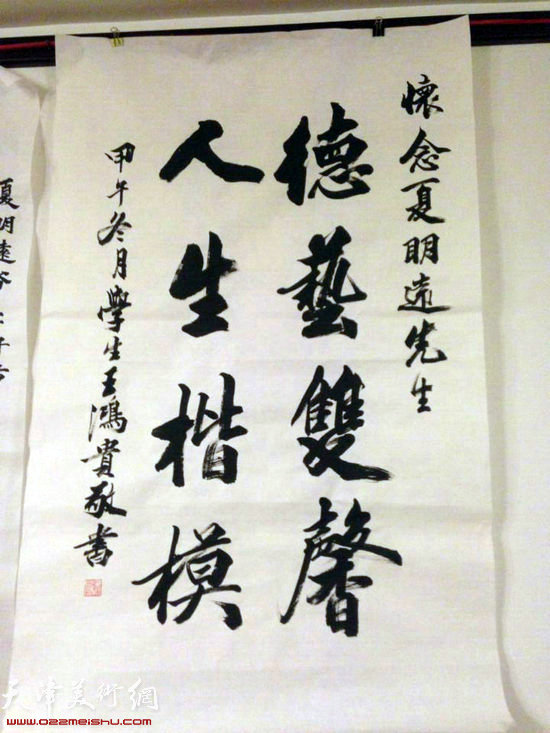 懷念夏明遠先生
德藝雙馨
人生楷模
甲午冬月學生王鴻貴敬書
夏明遠
天津美術網
www.022meishu.com